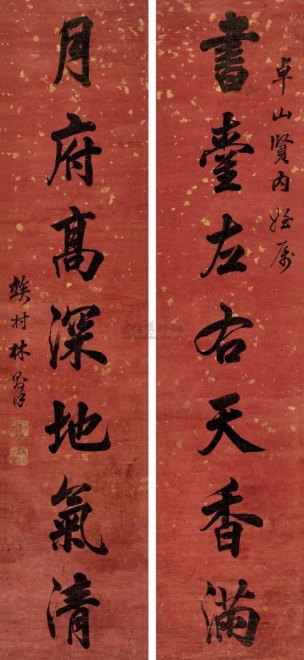 卓山賢內姪屬
書臺左右天香滿
月府高深地氣清
村林